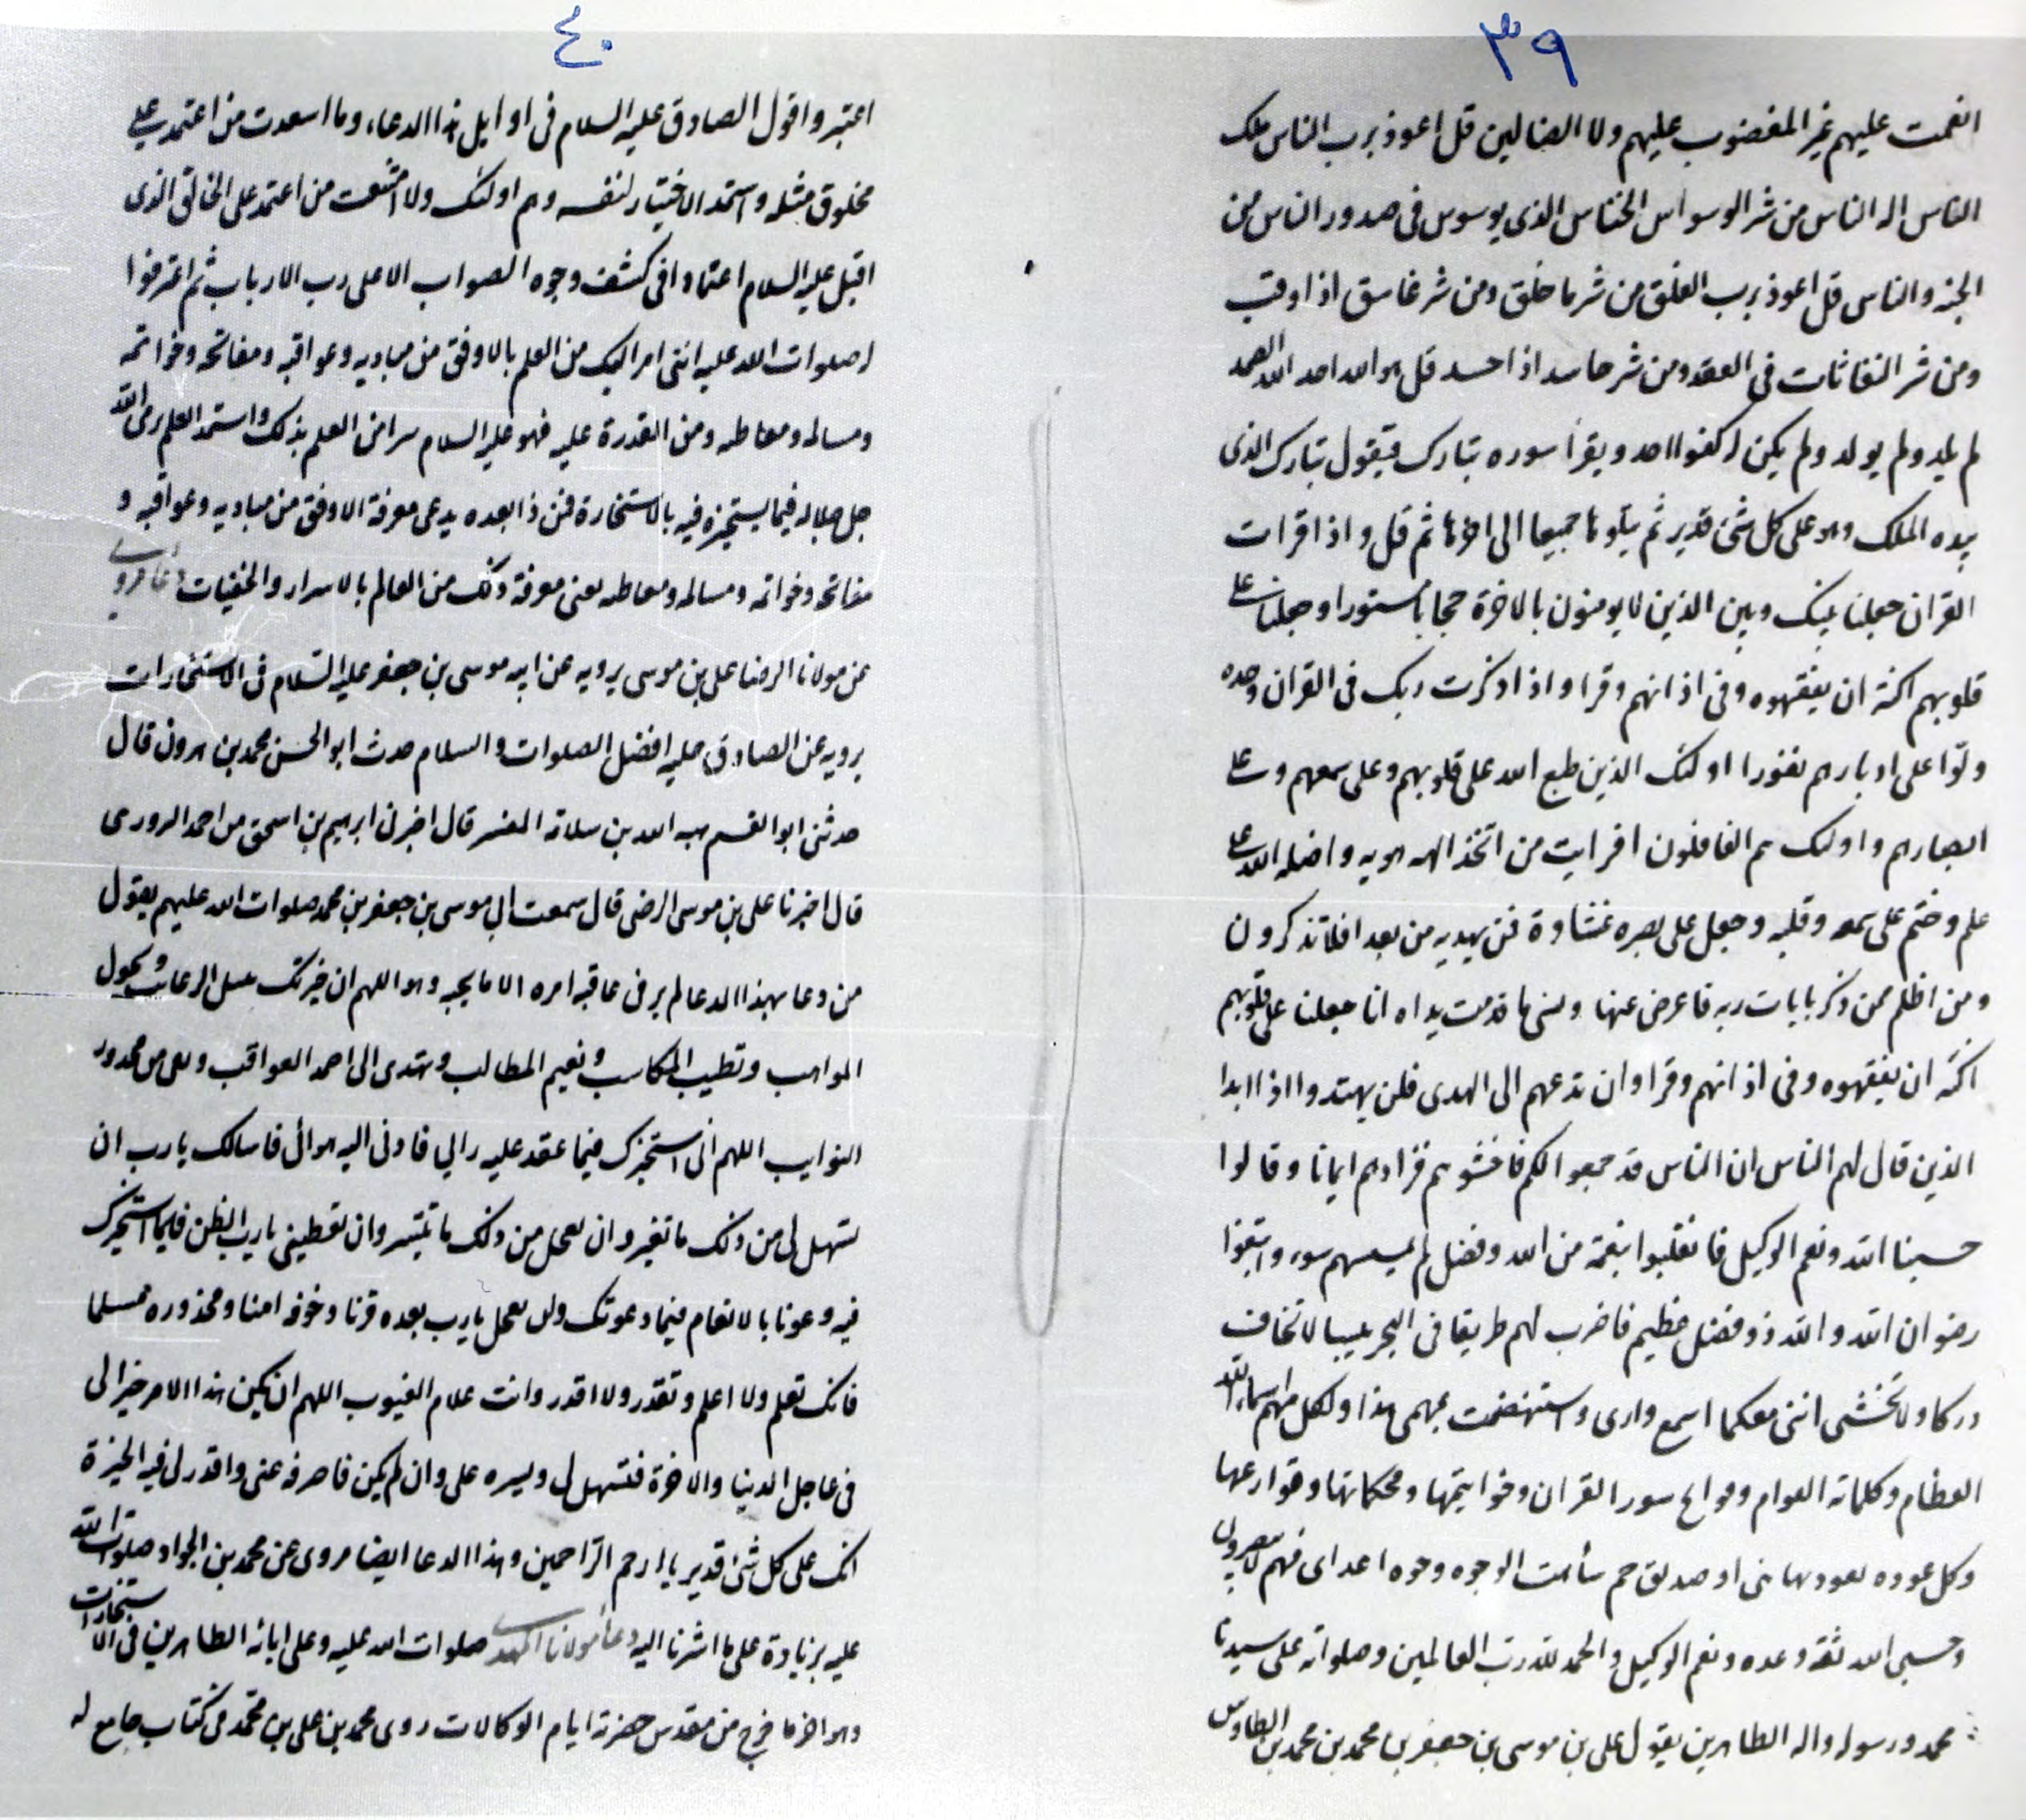 ٣٩
انعمت عليهم غير المغضوب عليهم ولا الضالين قل اعوذ برب الناس ملك
الناس اله الناس من شر الوسواس الخناس الذى يوسوس فى صدور الناس من
الجنه والناس قل اعوذ برب الفلق من شر ما خلق ومن شر غاسق اذا وقب
ومن شر النفاثات فى العقد ومن شر حاسد اذا حسد قل هو الله احد الله الصمد
لم يلد ولم يولد ولم يكن له كفوا احد ويقرأ سوره تبارك فيقول تبارك الذى
بيده الملك وهو على كل شئ قدير ثم يتلوها جميعا الى اخرها ثم قل و اذا قرات
القران جعلنا بينك وبين الذين لا يومنون بالاخرة حجابا مستورا وجعلنا على
قلوبهم اكنة ان يفقهوه وفى اذانهم وقرا واذا ذكرت ربك فى القران وحده
ولّوا على ادبارهم نفورا اولئك الذين طبع الله على قلوبهم وعلى سمعهم وعلى
ابصارهم واولئك هم الغافلون افرايت من اتخذ الهه هويه واضله الله على
علم وختم على سمعه وقلبه وجعل على بصره غشاوة فمن يهديه من بعد افلا تذكرون
ومن اظلم ممن ذكر بايات ربه فاعرض عنها ونسى ما قدمت يداه انا جعلنا على قلوبهم
اكنّه ان يفقهوه وفى اذانهم وقرا وان تدعهم الى الهدى فلن يهتدوا اذا ابدا
الذين قال لهم الناس ان الناس قد جمعوا لكم فاخشوهم فزادهم ايمانا وقالوا
حسبنا الله ونعم الوكيل فانقلبوا بنعمة من الله وفضل لم يمسسهم سوء واتبعوا
رضوان الله والله ذو فضل عظيم فاضرب لهم طريقا فى البحر يبسا لا تخاف
دركا ولا تخشى اننى معكما اسمع وارى واستنهضت لمهمى هذا ولكل مهم اسماء الله
العظام وكلماته التوام وفواتح سور القران وخواتيمها ومحكماتها وقوارعها
وكل عوذه تعوذ بها نبى او صديق حم شاهت الوجوه وجوه اعداى فهم لا يبصرون
وحسبى الله ثقة وعده ونعم الوكيل والحمد لله رب العالمين وصلواته على سيدنا
محمد ورسوله واله الطاهرين يقول على بن موسى بن جعفر بن محمد بن محمد بن الطاوس
٤٠
اعتبروا قول الصادق عليه السلام فى اوايل هذا الدعاء وما اسعدت من اعتمد على
مخلوق مثله واستمد الاختيار لنفسه وهم اولئك ولا اشقيت من اعتمد على الخالق الذى
اقبل عليه السلام اعتمادا فى كشف وجوه الصواب الا على رب الارباب ثم اعترفوا
له صلوات الله عليه اننى امر اليك من العلم بالاوفق من مباديه وعواقبه ومفاتحه وخواتمه
ومسالمه ومعاطبه ومن القدرة عليه فهو عليه السلام سرا من العلم بذلك واستمد العلم من الله
جل جلاله فيما يستخيره فيه بالاستخارة فمن ذا بعده يدعى معرفة الاوفق من مباديه وعواقبه و
مفاتحه وخواتمه ومسالمه ومعاطبه يعنى معرفة ذلك من العالم بالاسرار والخفيات دعا مروى
عن مولانا الرضا على بن موسى يرويه عن ابيه موسى بن جعفر عليه السلام فى الاستخارات
يرويه عن الصادق عليه افضل الصلوات والسلام حدث ابو الحسن محمد بن هرون قال
حدثنى ابو القسم هبه الله بن سلامه المفسر قال اخبرنا ابرهيم بن اسحق بن احمد
قال اخبرنا على بن موسى الرضى قال سمعت ابى موسى بن جعفر بن محمد صلوات الله عليهم يقول
من دعا بهذا الدعا لم ير فى عاقبه امره الا ما يحبه وهو اللهم ان خيرتك تنيل الرغائب وتجزل
المواهب وتطيب المكاسب وتغنم المطالب وتهدى الى احمد العواقب وتقى من محذور
النوايب اللهم انى استخيرك فيما عقد عليه رايى وقادنى اليه هوائى فاسالك يا رب ان
تسهل لى من ذلك ما تعسر وان تعجل من ذلك ما تيسر وان تعطينى يا رب الظفر فيما استخيرك
فيه وعونا بالانعام فيما دعوتك وان تجعل يا رب بعده قربا وخوفه امنا ومحذوره سلما
فانك تعلم ولا اعلم وتقدر ولا اقدر وانت علام الغيوب اللهم ان يكن هذا الامر خيرا لى
فى عاجل الدنيا والاخرة فسهله لى ويسره على وان لم يكن فاصرفه عنى واقدر لى فيه الخيرة
انك على كل شئ قدير يا ارحم الراحمين وهذا الدعا ايضا مروى عن محمد بن الجواد صلوات الله
عليه بزيادة على ما اشرنا اليه دعا مولانا المهدى صلوات الله عليه وعلى ابائه الطاهرين فى الاستخارات
وهو اخر ما خرج من مقدس حضرته ايام الوكالات روى محمد بن على بن محمد فى كتاب جامع له